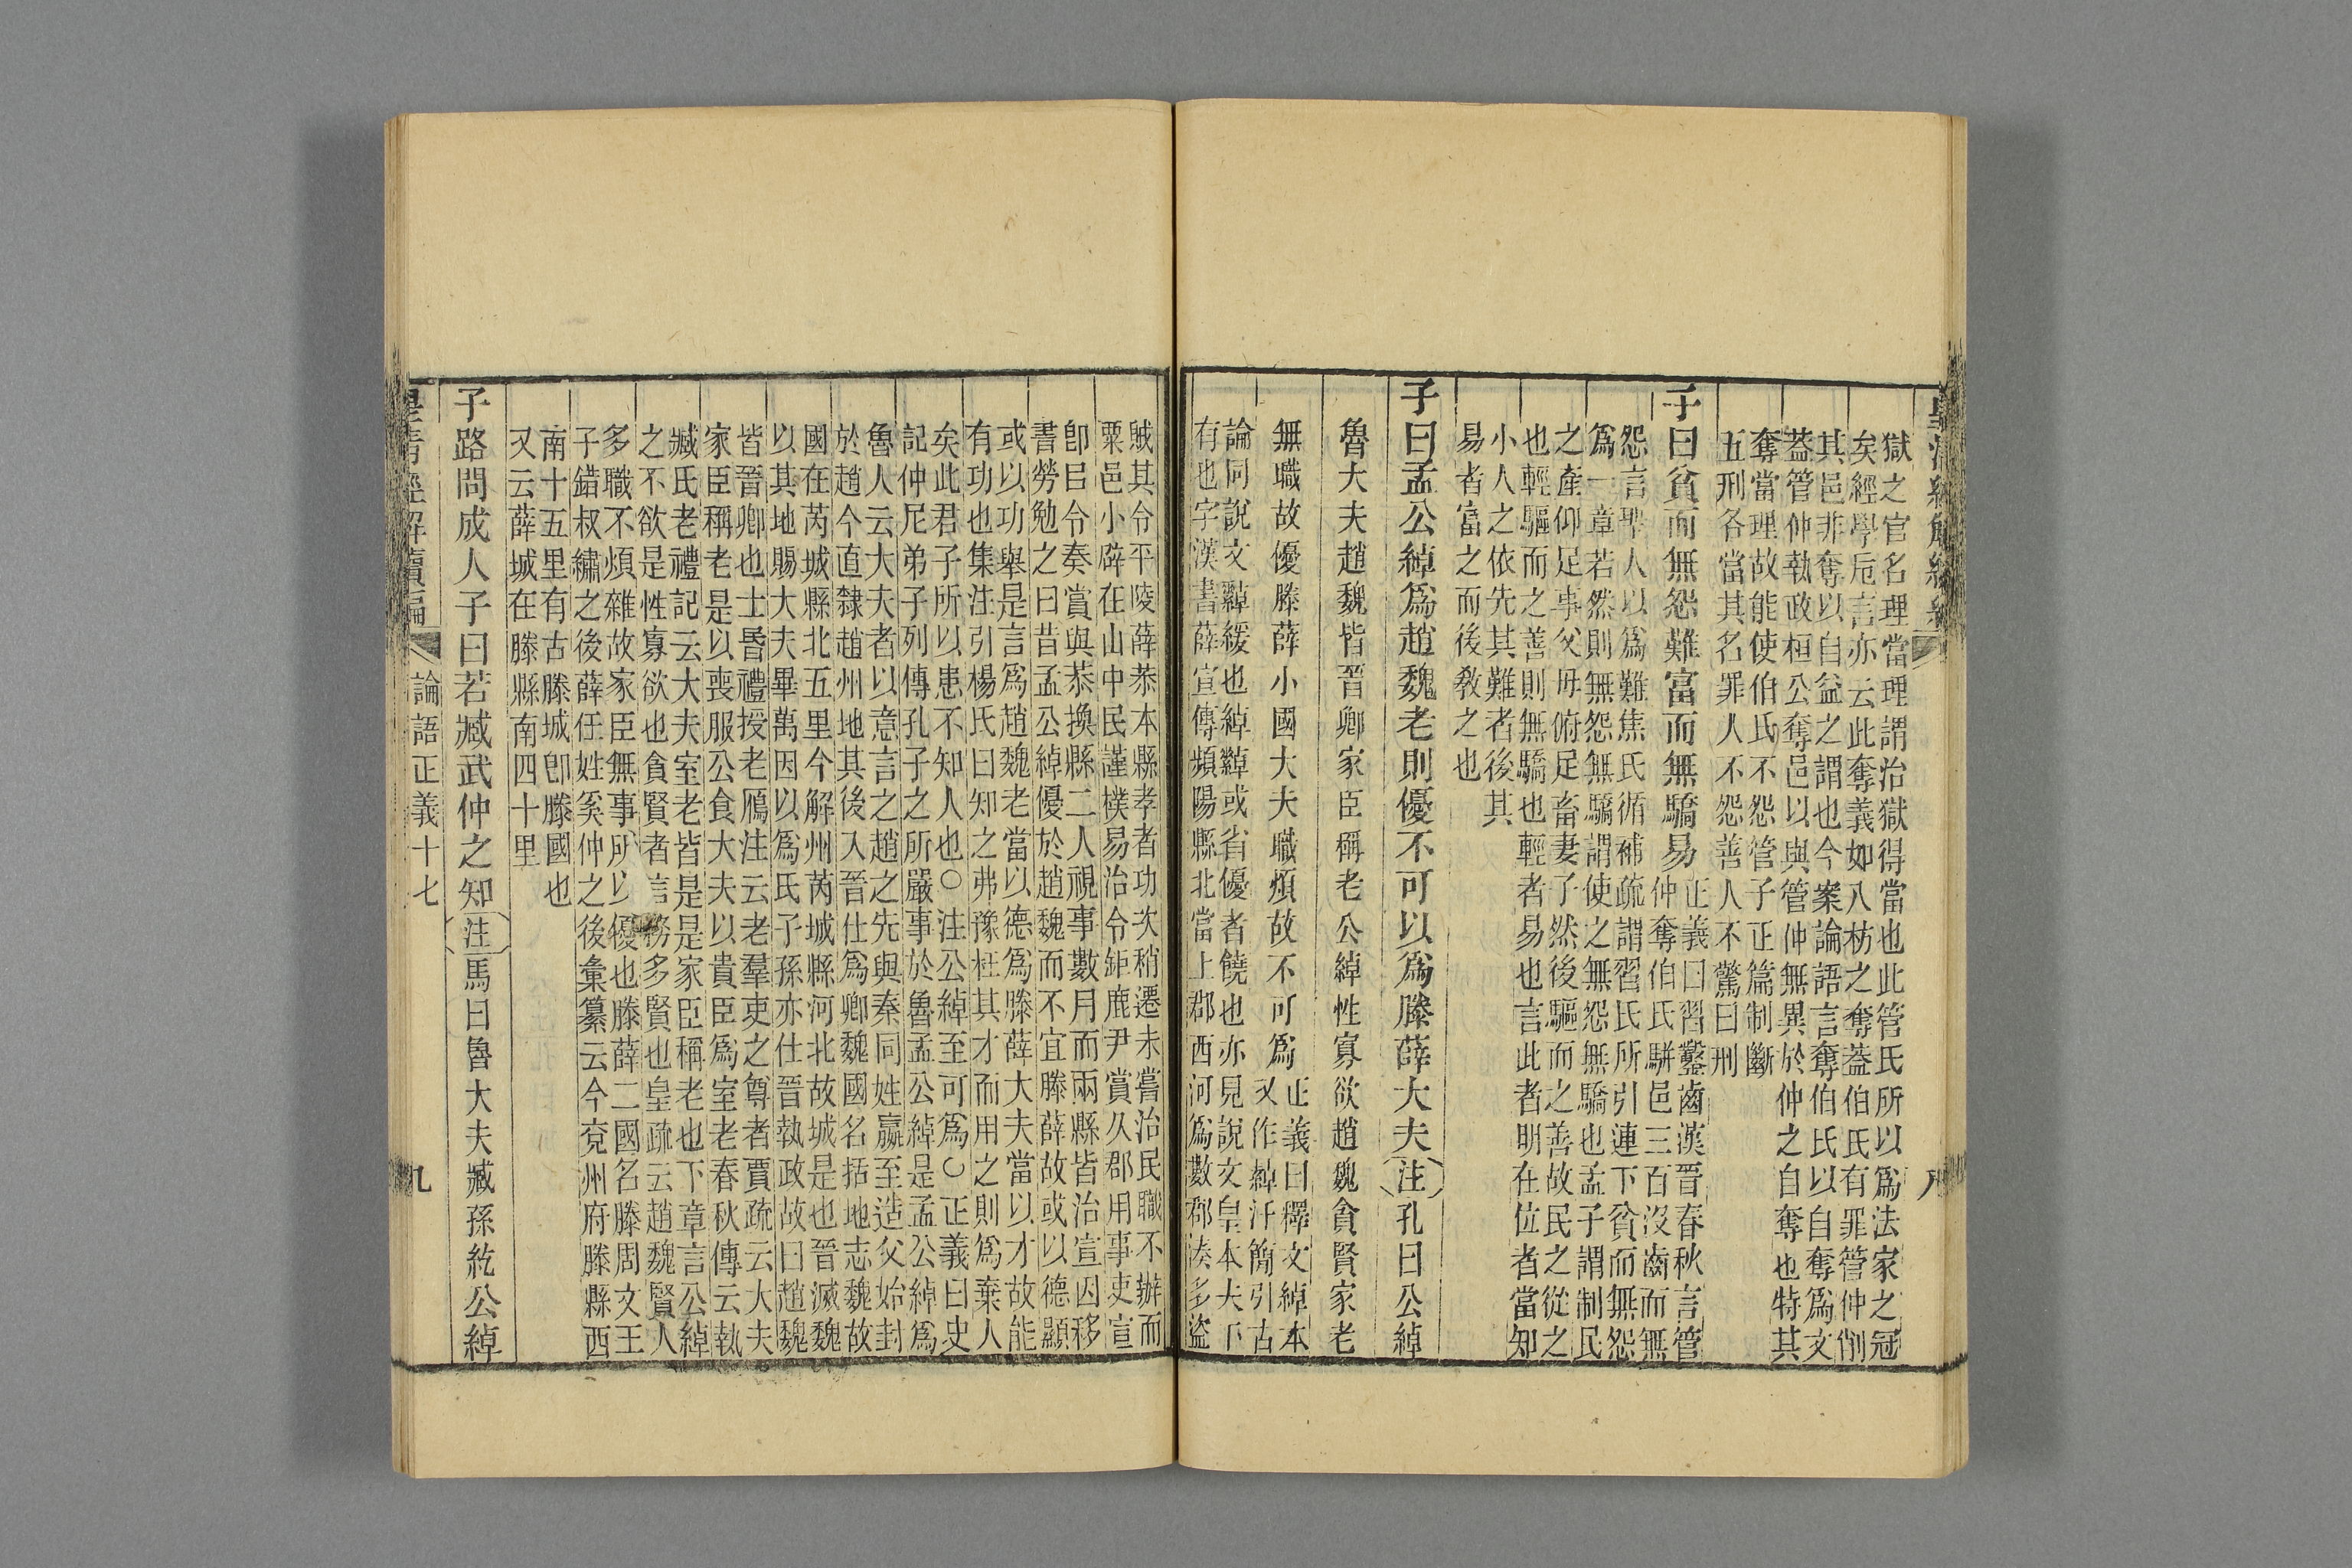 皇清經解續編
八
獄之官名理當理謂治獄得當也此管氏所以爲法家之冠
矣經學卮言亦云此奪義如八枋之奪蓋伯氏有罪管仲削
其邑非奪以自益之謂也今案論語言奪伯氏以自奪爲文
蓋管仲執政桓公奪邑以與管仲無異於仲之自奪也特其
奪當理故能使伯氏不怨管子正篇制斷
五刑各當其名罪人不怨善人不驚曰刑
子曰貧而無怨難富而無驕易
正義曰習鑿齒漢晉春秋言管
仲奪伯氏駢邑三百沒齒而無
怨言聖人以爲難焦氏循補疏謂習氏所引連下貧而無怨
爲一章若然則無怨無驕謂使之無怨無驕也孟子謂制民
之產仰足事父毋俯足畜妻子然後驅而之善故民之從之
也輕驅而之善則無驕也輕者易也言此者明在位者當知
小人之依先其難者後其
易者富之而後敎之也
子曰孟公綽爲趙魏老則優不可以爲滕薛大夫注孔曰公綽
魯大夫趙魏皆晉卿家臣稱老公綽性寡欲趙魏貪賢家老
無職故優滕薛小國大夫職煩故不可爲
正義曰釋文綽本
又作繛汗簡引古
論同說文繛緩也綽繛或省優者饒也亦見說文皇本大下
有也字漢書薛宣傳頻陽縣北當上郡西河爲數郡湊多盜
賊其令平陵薛恭本縣孝者功次稍遷未嘗治民職不辦而
粟邑小辟在山中民謹樸易治令鉅鹿尹賞久郡用事吏宣
卽㠯令奏賞與恭換縣二人視事數月而兩縣皆治宣因移
書勞勉之曰昔孟公綽優於趙魏而不宜滕薛故或以德顯
或以功舉是言爲趙魏老當以德爲滕薛大夫當以才故能
有功也集注引楊氏曰知之弗豫枉其才而用之則爲棄人
矣此君子所以患不知人也○注公綽至可爲○正義曰史
記仲尼弟子列傳孔子之所嚴事於魯孟公綽是孟公綽爲
魯人云大夫者以意言之趙之先與秦同姓嬴至造父始封
於趙今直隸趙州地其後入晉仕爲卿魏國名括地志魏故
國在芮城縣北五里今解州芮城縣河北故城是也晉滅魏
以其地賜大夫畢萬因以爲氏子孫亦仕晉執政故曰趙魏
皆晉卿也士昬禮授老鴈注云老羣吏之尊者賈疏云大夫
家臣稱老是以喪服公食大夫以貴臣爲室老春秋傳云執
臧氏老禮記云大夫室老皆是是家臣稱老也下章言公綽
之不欲是性寡欲也貪賢者言務多賢也皇疏云趙魏賢人
多職不煩雜故家臣無事所以優也滕薛二國名滕周文王
子錯叔繡之後薛任姓奚仲之後彙纂云今兗州府滕縣西
南十五里有古滕城卽滕國也
又云薛城在滕縣南四十里
子路問成人子曰若臧武仲之知注馬曰魯大夫臧孫紇公綽
皇清經解續編
論語正義十七
九